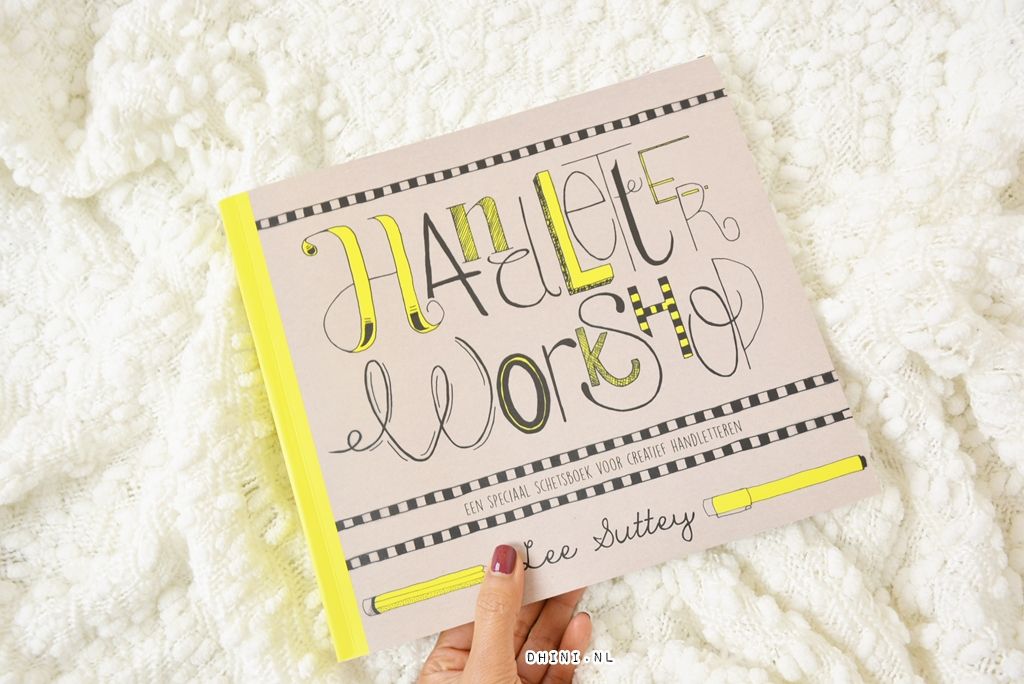 HAndLetTER
WorKSHOP
EEN SPECIAAL SCHETSBOEK VOOR CREATIEF HANDLETTEREN
Lee Suttey
DHINI.NL